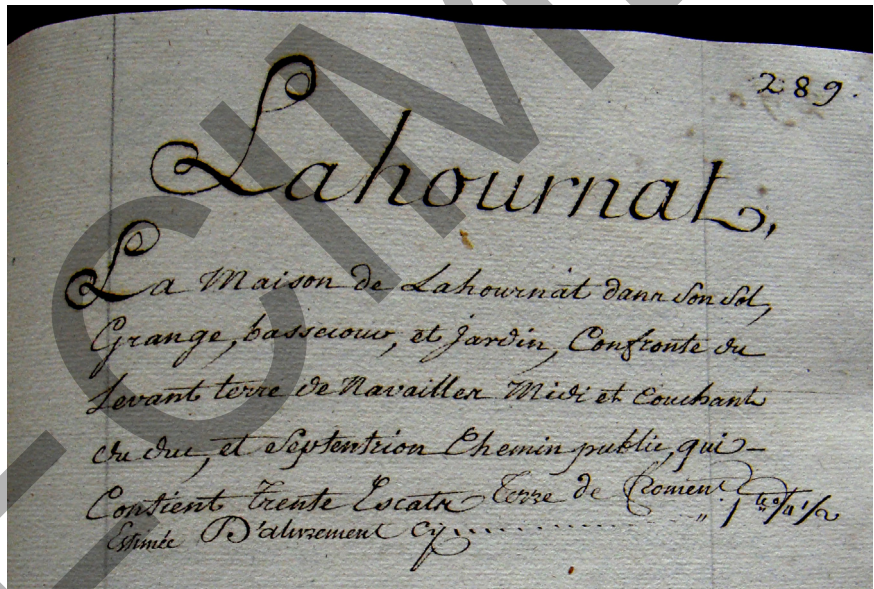 289.
Lahournat,
La Maison de Lahournat dans Son Sol,
Grange, bassecour, et Jardin, Confronte du
Levant terre de Navailles Midi et Couchant
du duc, et Septentrion Chemin public, qui
Contient trente Escats Terre de
Estimée D'alivrement Cy